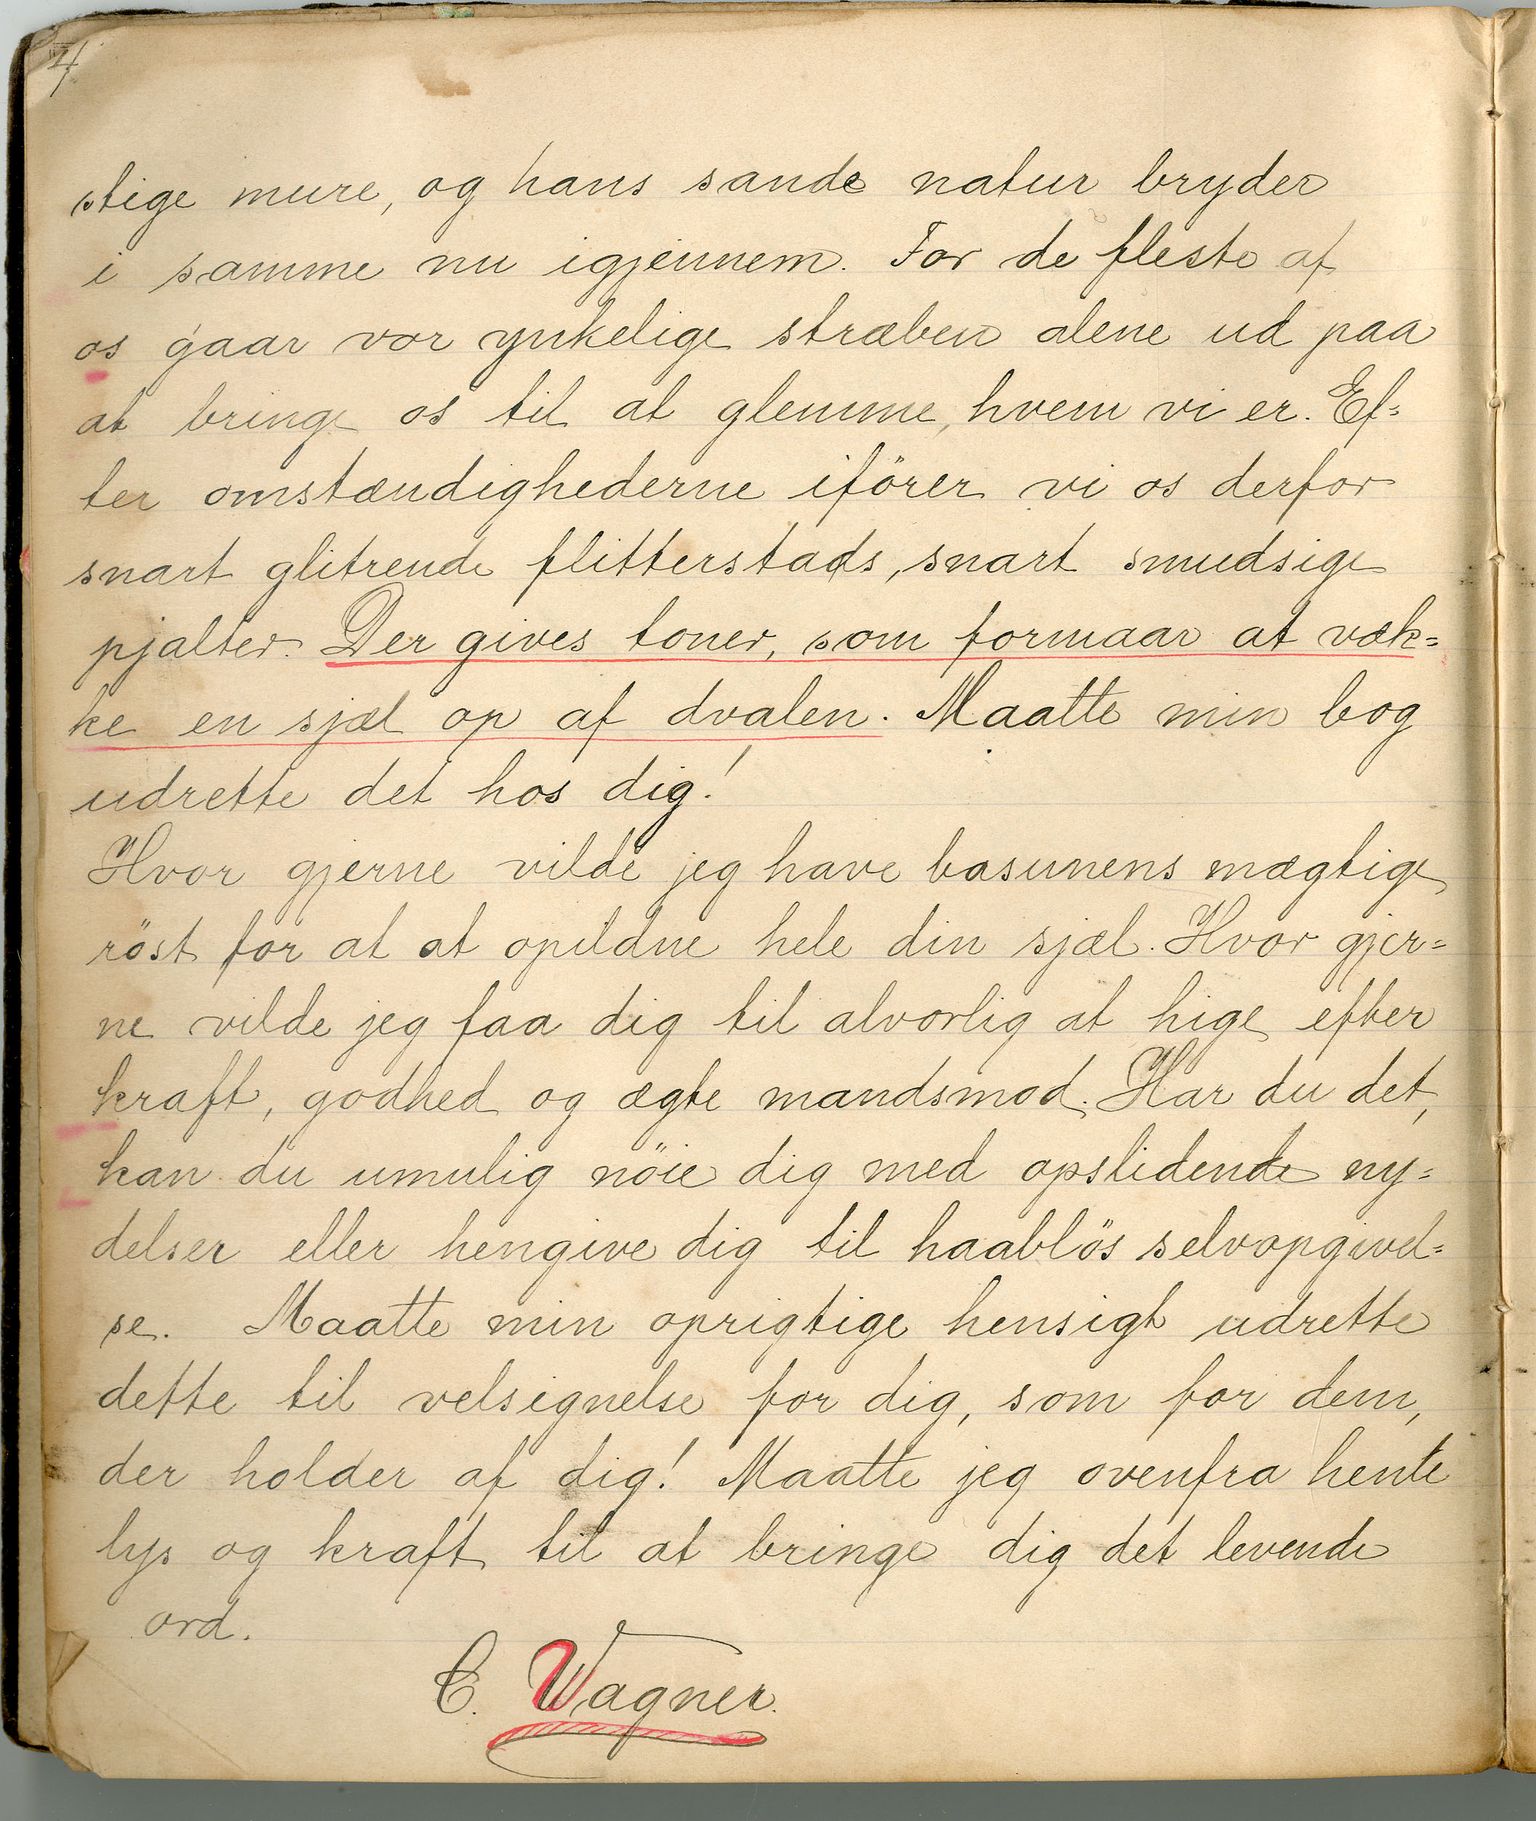 4
stige mure, og hans sande natur bryder
i samme nu igjennem. For de fleste af
os gaar vor ynkelige stræben alene ud paa
at bringe os til at glemme, hvem vi er. Ef=
ter omstændighederne ifører vi os derfor
snart glitrende flitterstads, snart smudsige
pjalter. Der gives toner, som formaar at væk=
ke en sjæl op af dvalen. Maatte min bog
udrette det hos dig!
Hvor gjerne vilde jeg have basunens mægtige
röst for at at opildne hele din sjæl. Hvor gjer=
ne vilde jeg faa dig til alvorlig at hige efter
kraft, godhed og ægte mandsmod. Har du det,
kan du umulig nöie dig med opslidende ny=
delser eller hengive dig til haablös selvopgivel=
se. Maatte min oprigtige hensigt udrette
dette til velsignelse for dig, som for dem,
der holder af dig! Maatte jeg ovenfra hente
lys og kraft til at bringe dig det levende
ord.
C. Wagner.